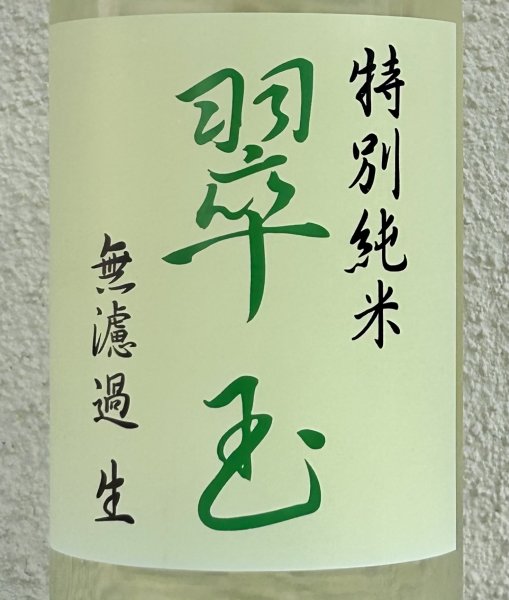 特別純米
翠玉
無濾過 生